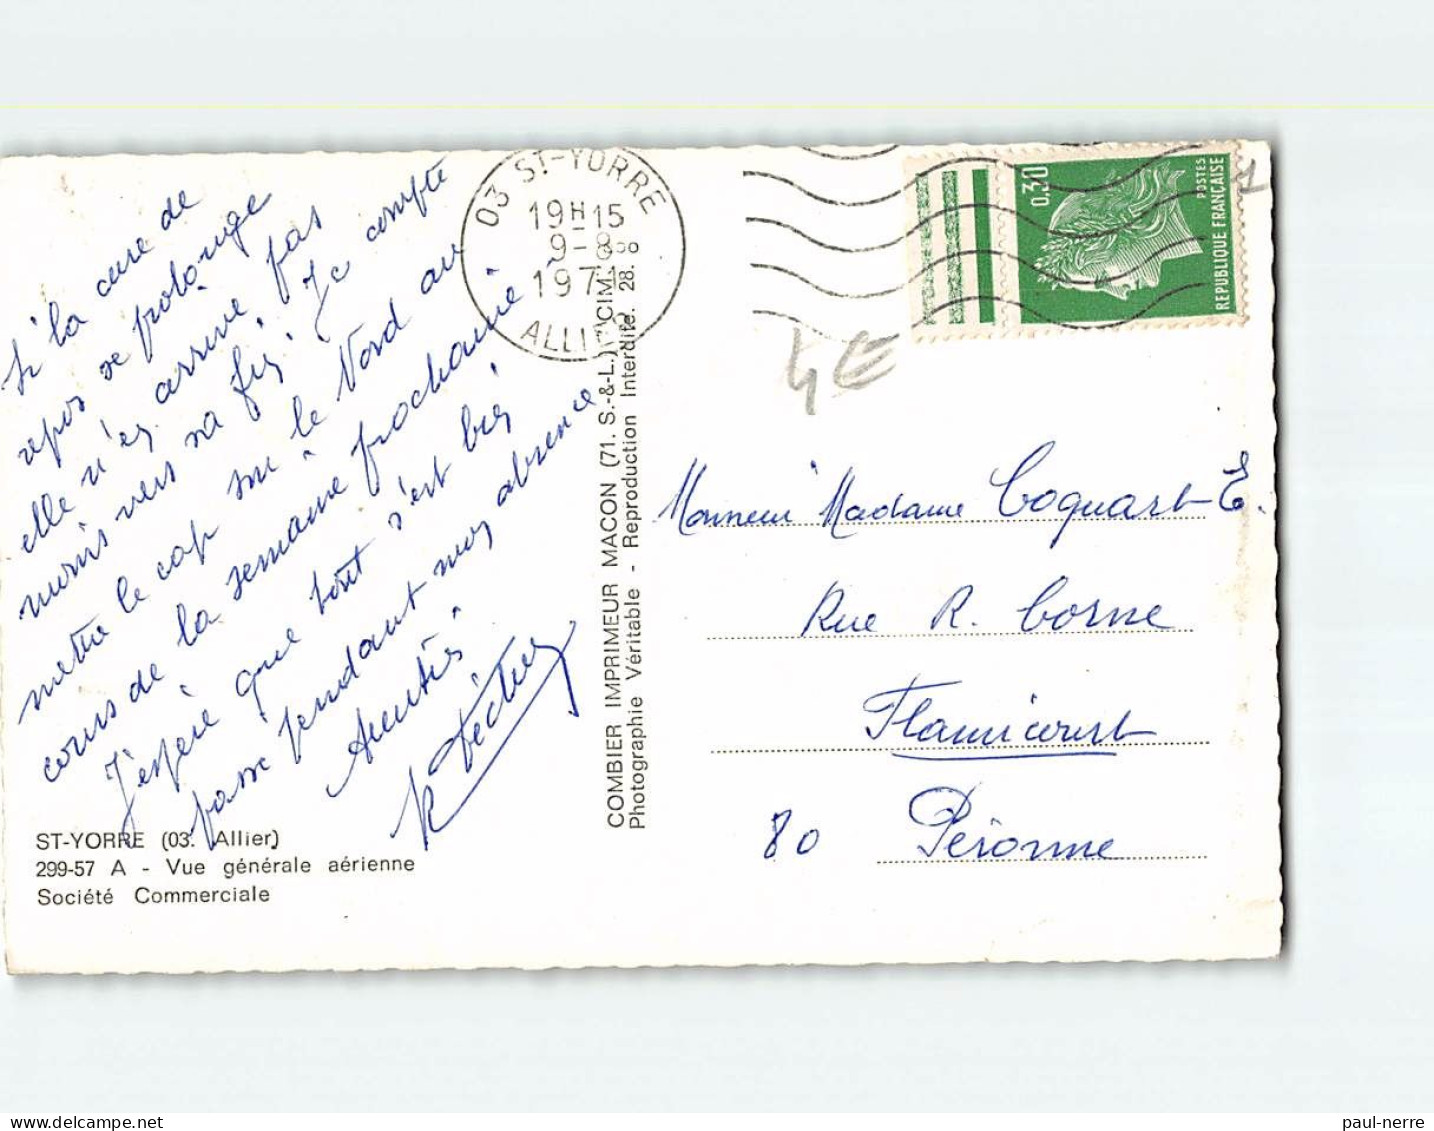 Si la cure de
repos se prolonge
elle n'en arrive pas
moins vers sa fin. Je compte
mettre le cap sur le Nord au
cours de la semaine prochaine
J'espère que tout s'est bien
passé pendant mon absence
Amitiés
ST-YORRE (03. Allier)
299-57 A - Vue générale aérienne
Société Commerciale
COMBIER IMPRIMEUR MACON (71. S.-&-L.) "CIM"
Photographie Véritable - Reproduction Interdite. 28.
03 ST-YORRE
19H15
9-8
197
ALLIER
0,30
POSTES
REPUBLIQUE FRANÇAISE
1
4€
Monsieur Madame Coquart E.
Rue R. Corne
Flamicourt
80 Péronne
paul-nerre